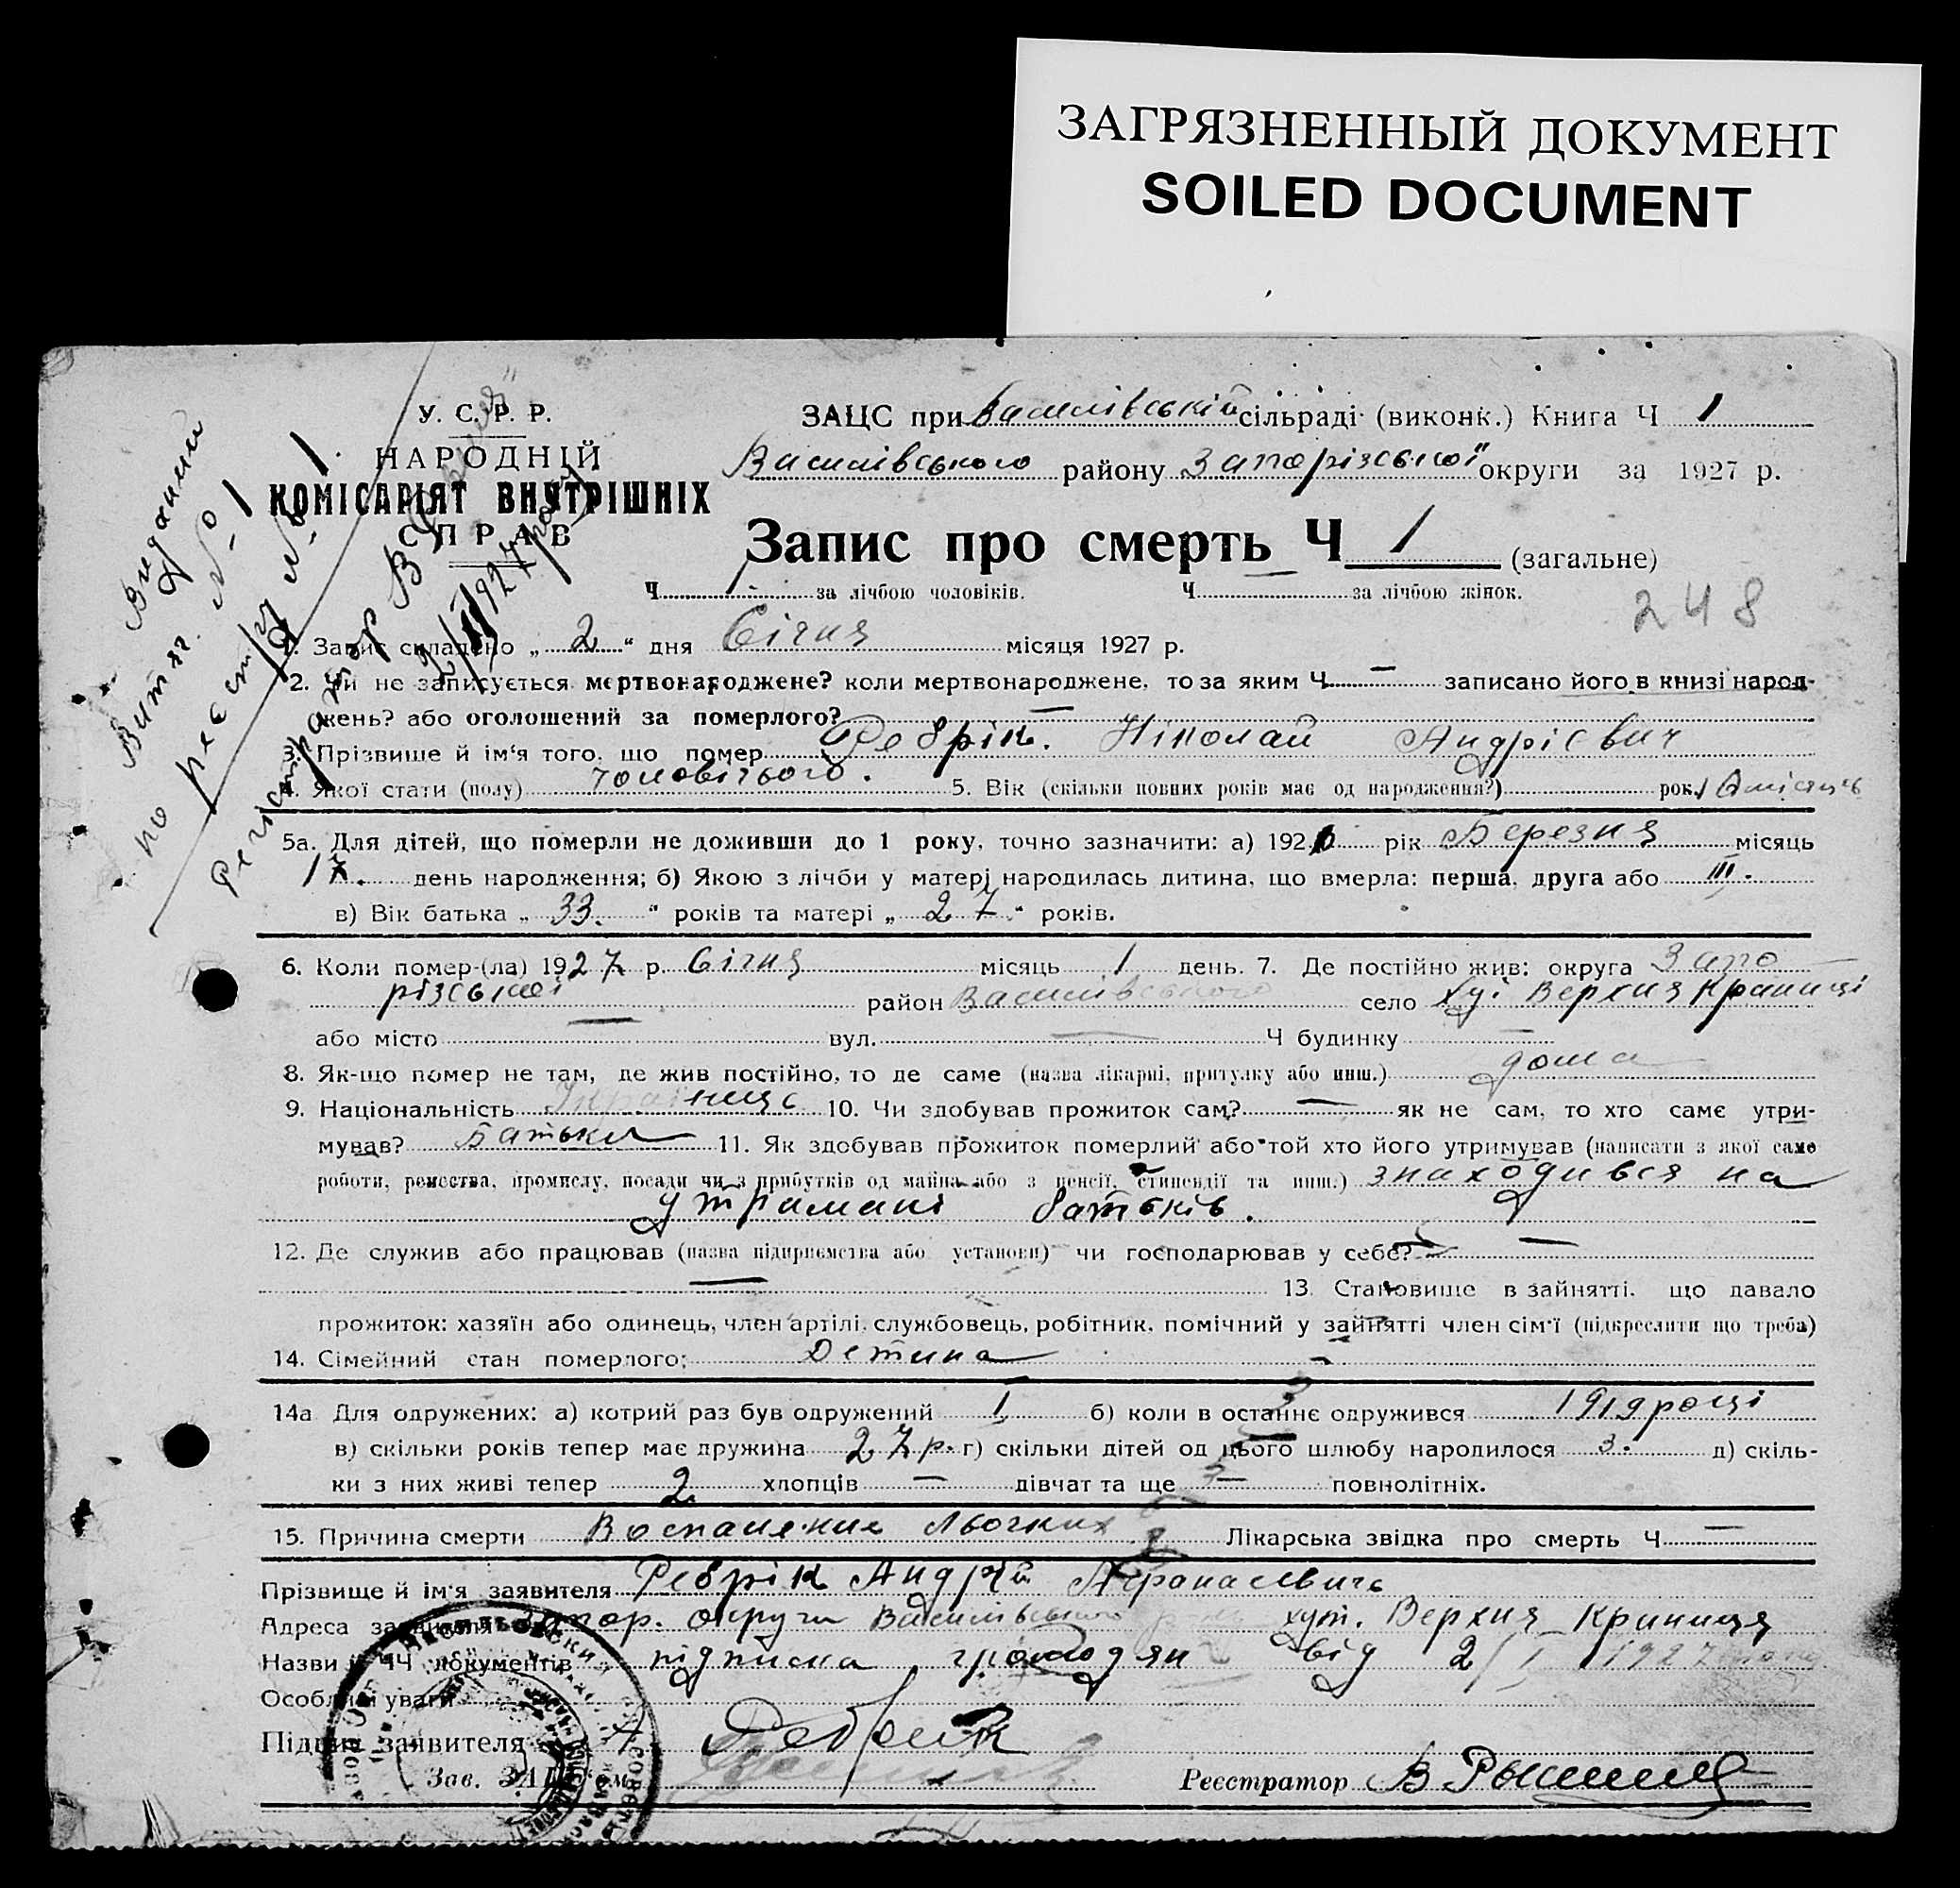 ЗАГРЯЗНЕННЫЙ ДОКУМЕНТ
SOILED DOCUMENT
У. С. Р. Р.
НАРОДНІЙ
КОМІСАРІЯТ ВНУТРІШНІХ
СПРАВ
ЗАЦС при Василівській сільраді (виконк.) Книга Ч 1
Василівського району Запорізської округи за 1927 р.
Запис про смерть Ч 1 (загальне)
Ч 1 за лічбою чоловіків. Ч — за лічбою жінок.
248
Виданий
Витяг. № 1
по реєстру № 1
Регістратор
2/II 1927 року
1. Запис складено „ 2 “ дня Січня місяця 1927 р.
2. Чи не записується мертвонароджене? коли мертвонароджене, то за яким Ч — записано його в книзі народ-
жень? або оголошений за померлого? —
3. Прізвище й ім'я того, що помер Ребрік. Ніколай Андрієвич
4. Якої стати (полу) чоловічого. 5. Вік (скільки повних років має од народження?) рок. місяць
5а. Для дітей, що померли не доживши до 1 року, точно зазначити: а) 1926 рік Березня місяць
17. день народження; б) Якою з лічби у матері народилась дитина, що вмерла: перша, друга або III.
в) Вік батька „ 33. “ років та матері „ 27 “ років.
6. Коли помер-(ла) 1927 р. Січня місяць 1 день. 7. Де постійно жив: округа Запо
різської район Василівського село Хут Верхня Криниці
або місто — вул. — Ч будинку —
8. Як-що помер не там, де жив постійно, то де саме (назва лікарні, притулку або инш.) дома
9. Національність Українцє 10. Чи здобував прожиток сам? — як не сам, то хто саме утри-
мував? Батьки 11. Як здобував прожиток померлий або той хто його утримував (написати з якої саме
роботи, ремества, промислу, посади чи з прибутків од майна або з пенсії, стипендії та инш.) знаходився на
утримані батьків.
12. Де служив або працював (назва підприємства або установи) чи господарював у себе? —
— 13. Становище в зайнятті, що давало
прожиток: хазяїн або одинець, член артілі, службовець, робітник, помічний у зайнятті член сім'ї (підкреслити що треба)
14. Сімейний стан померлого: Детина
14а Для одружених: а) котрий раз був одружений 1 б) коли в останнє одружився 1919 році
в) скільки років тепер має дружина 27 р. г) скільки дітей од цього шлюбу народилося 3. д) скіль-
ки з них живі тепер 2 хлопців — дівчат та ще — повнолітніх.
15. Причина смерти Воспаление Льогких Лікарська звідка про смерть Ч —
Прізвище й ім'я заявителя Ребрік Андрій Афанасевичь
Адреса заявителя Запор. округи Василівського хут. Верхня Криниця
Назви й ЧЧ документів підписка громодян від 2/I 1927 року
Особливі уваги
Підпис заявителя А Ребрик
Зав. ЗАЦС'ом
Реєстратор В Рышниц